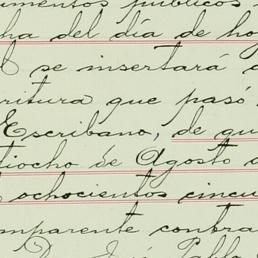 umentos públicos
ha del día de ho
se insertará
ritura que pasó
Escribano, de qu
tiocho de Agosto
ochocientos cincu
mparente contra